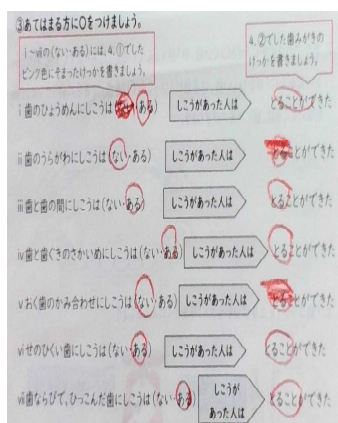 ③あてはまる方に○をつけましょう。
ⅰ~ⅶの(ない・ある)には、4.①でした
ピンク色にそまったけっかを書きましょう。
4.②でした歯みがきの
けっかを書きましょう。
ⅰ歯のひょうめんにしこうは(ない・ある) しこうがあった人は とることができた
ⅱ歯のうらがわにしこうは(ない・ある) しこうがあった人は とることができた
ⅲ歯と歯の間にしこうは(ない・ある) しこうがあった人は とることができた
ⅳ歯と歯ぐきのさかいめにしこうは(ない・ある) しこうがあった人は とることができた
ⅴおく歯のかみ合わせにしこうは(ない・ある) しこうがあった人は とることができた
ⅵせのひくい歯にしこうは(ない・ある) しこうがあった人は とることができた
ⅶ歯ならびで、ひっこんだ歯にしこうは(ない・ある) しこうが
あった人は とることができた